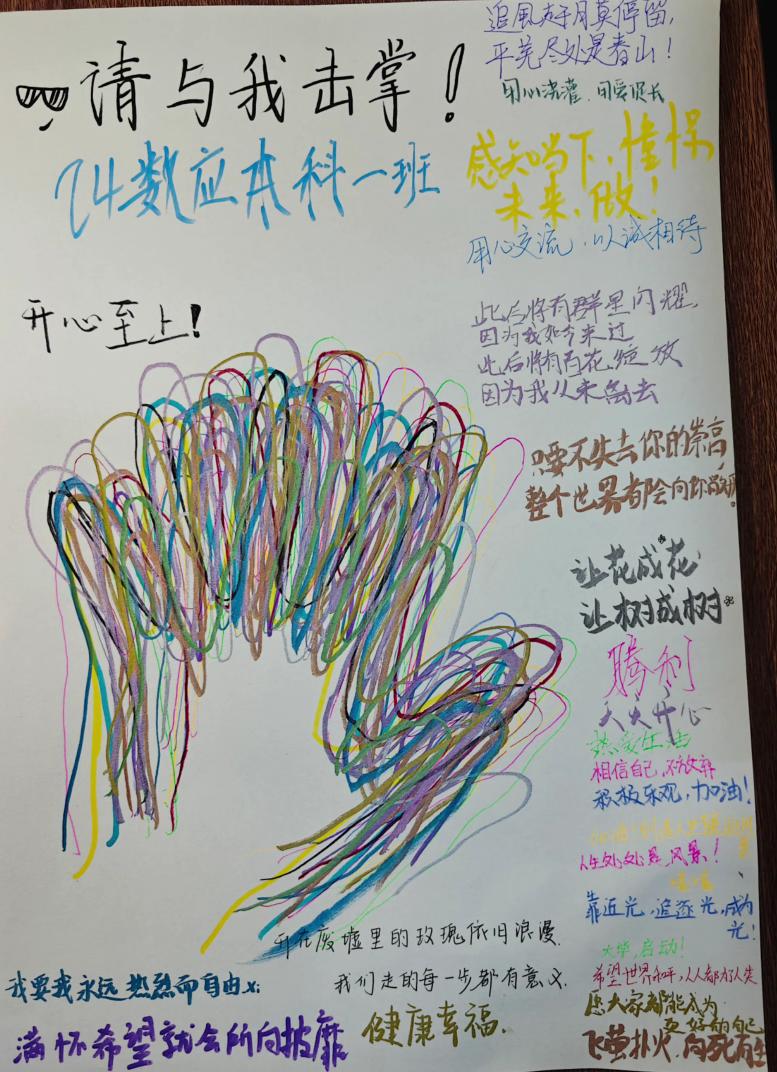 请与我击掌！
24数应本科一班
开心至上！
追风赶月莫停留，
平芜尽处是春山！
用心浇灌，用爱促长
感知当下，憧憬
未来，做！
用心交流，以诚相待
此后将有群星闪耀，
因为我如今来过
此后将有百花绽放
因为我从未离去
只要不失去你的崇高，
整个世界都会向你敞开。
让花成花
让树成树
腾利
天天开心
热爱生活
相信自己，不放弃
积极乐观，加油！
人生处处是风景！
嘻嘻
靠近光，追逐光，成为
光！
大华，启动！
希望世界和平，人人都
愿大家都能成为
更好的自己
飞萤扑火，向死而生
开在废墟里的玫瑰依旧浪漫.
我们走的每一步都有意义.
我要我永远热烈而自由
满怀希望就会所向披靡
健康幸福.